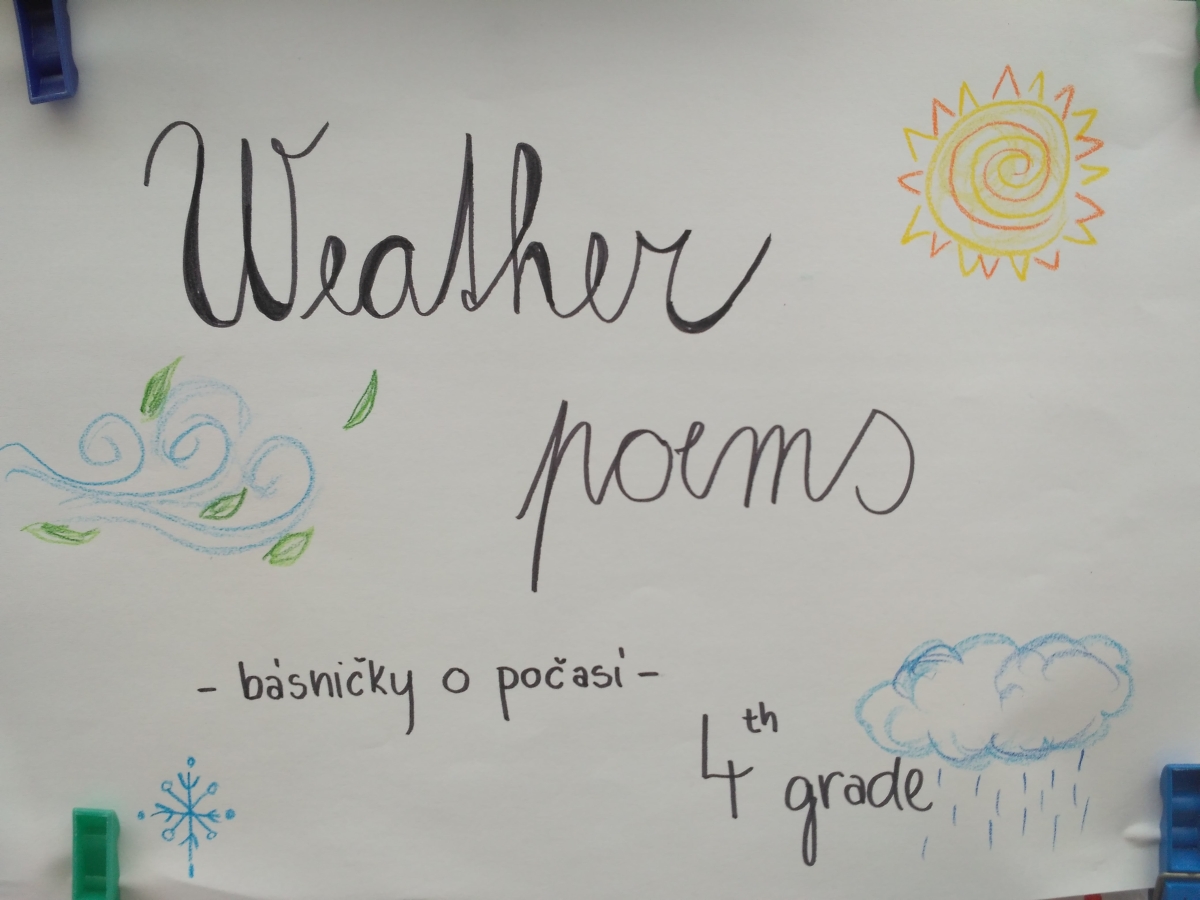 Weather
poems
- básničky o počasí -
4th grade